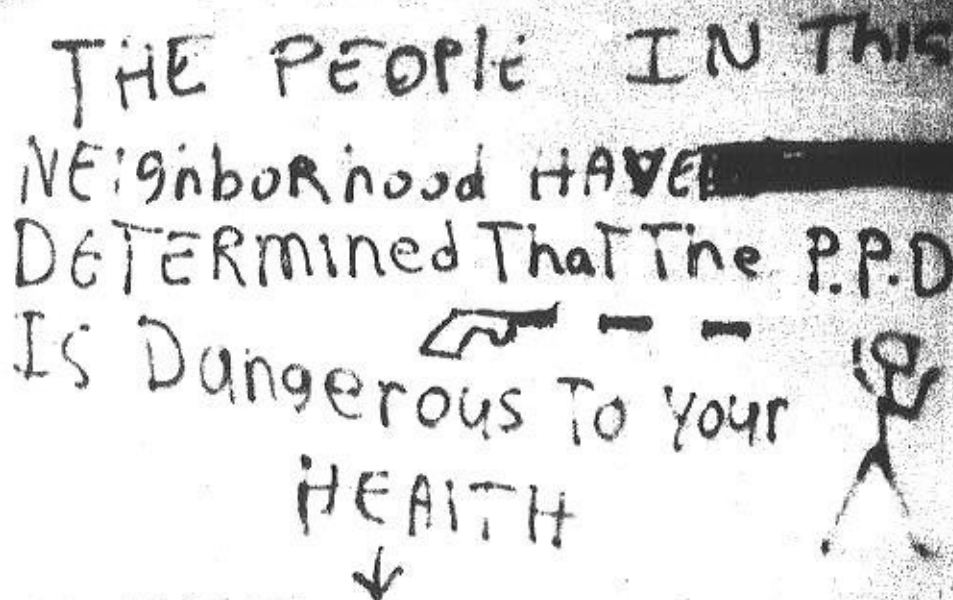 THE PEOPlE IN THis
NEighboRhood HAVE
DETERmined ThaT The P.P.D
Is Dangerous To Your
HEAlTH